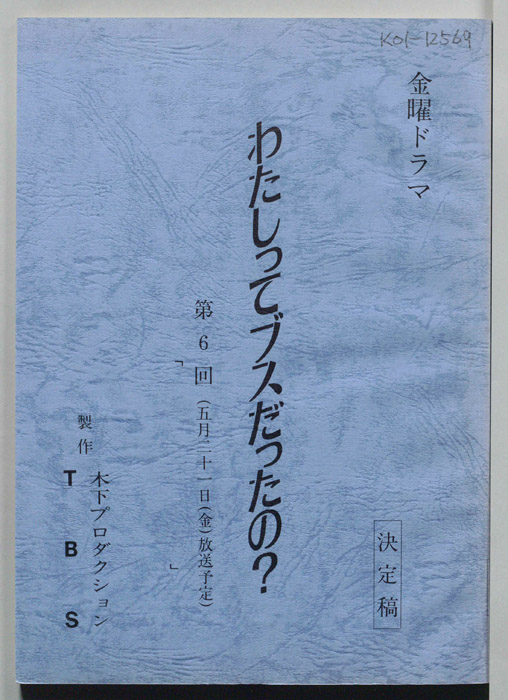 K01-12569
金曜ドラマ
決定稿
わたしってブスだったの?
第6回(五月二十一日(金)放送予定)
「 」
製作
木下プロダクション
TBS